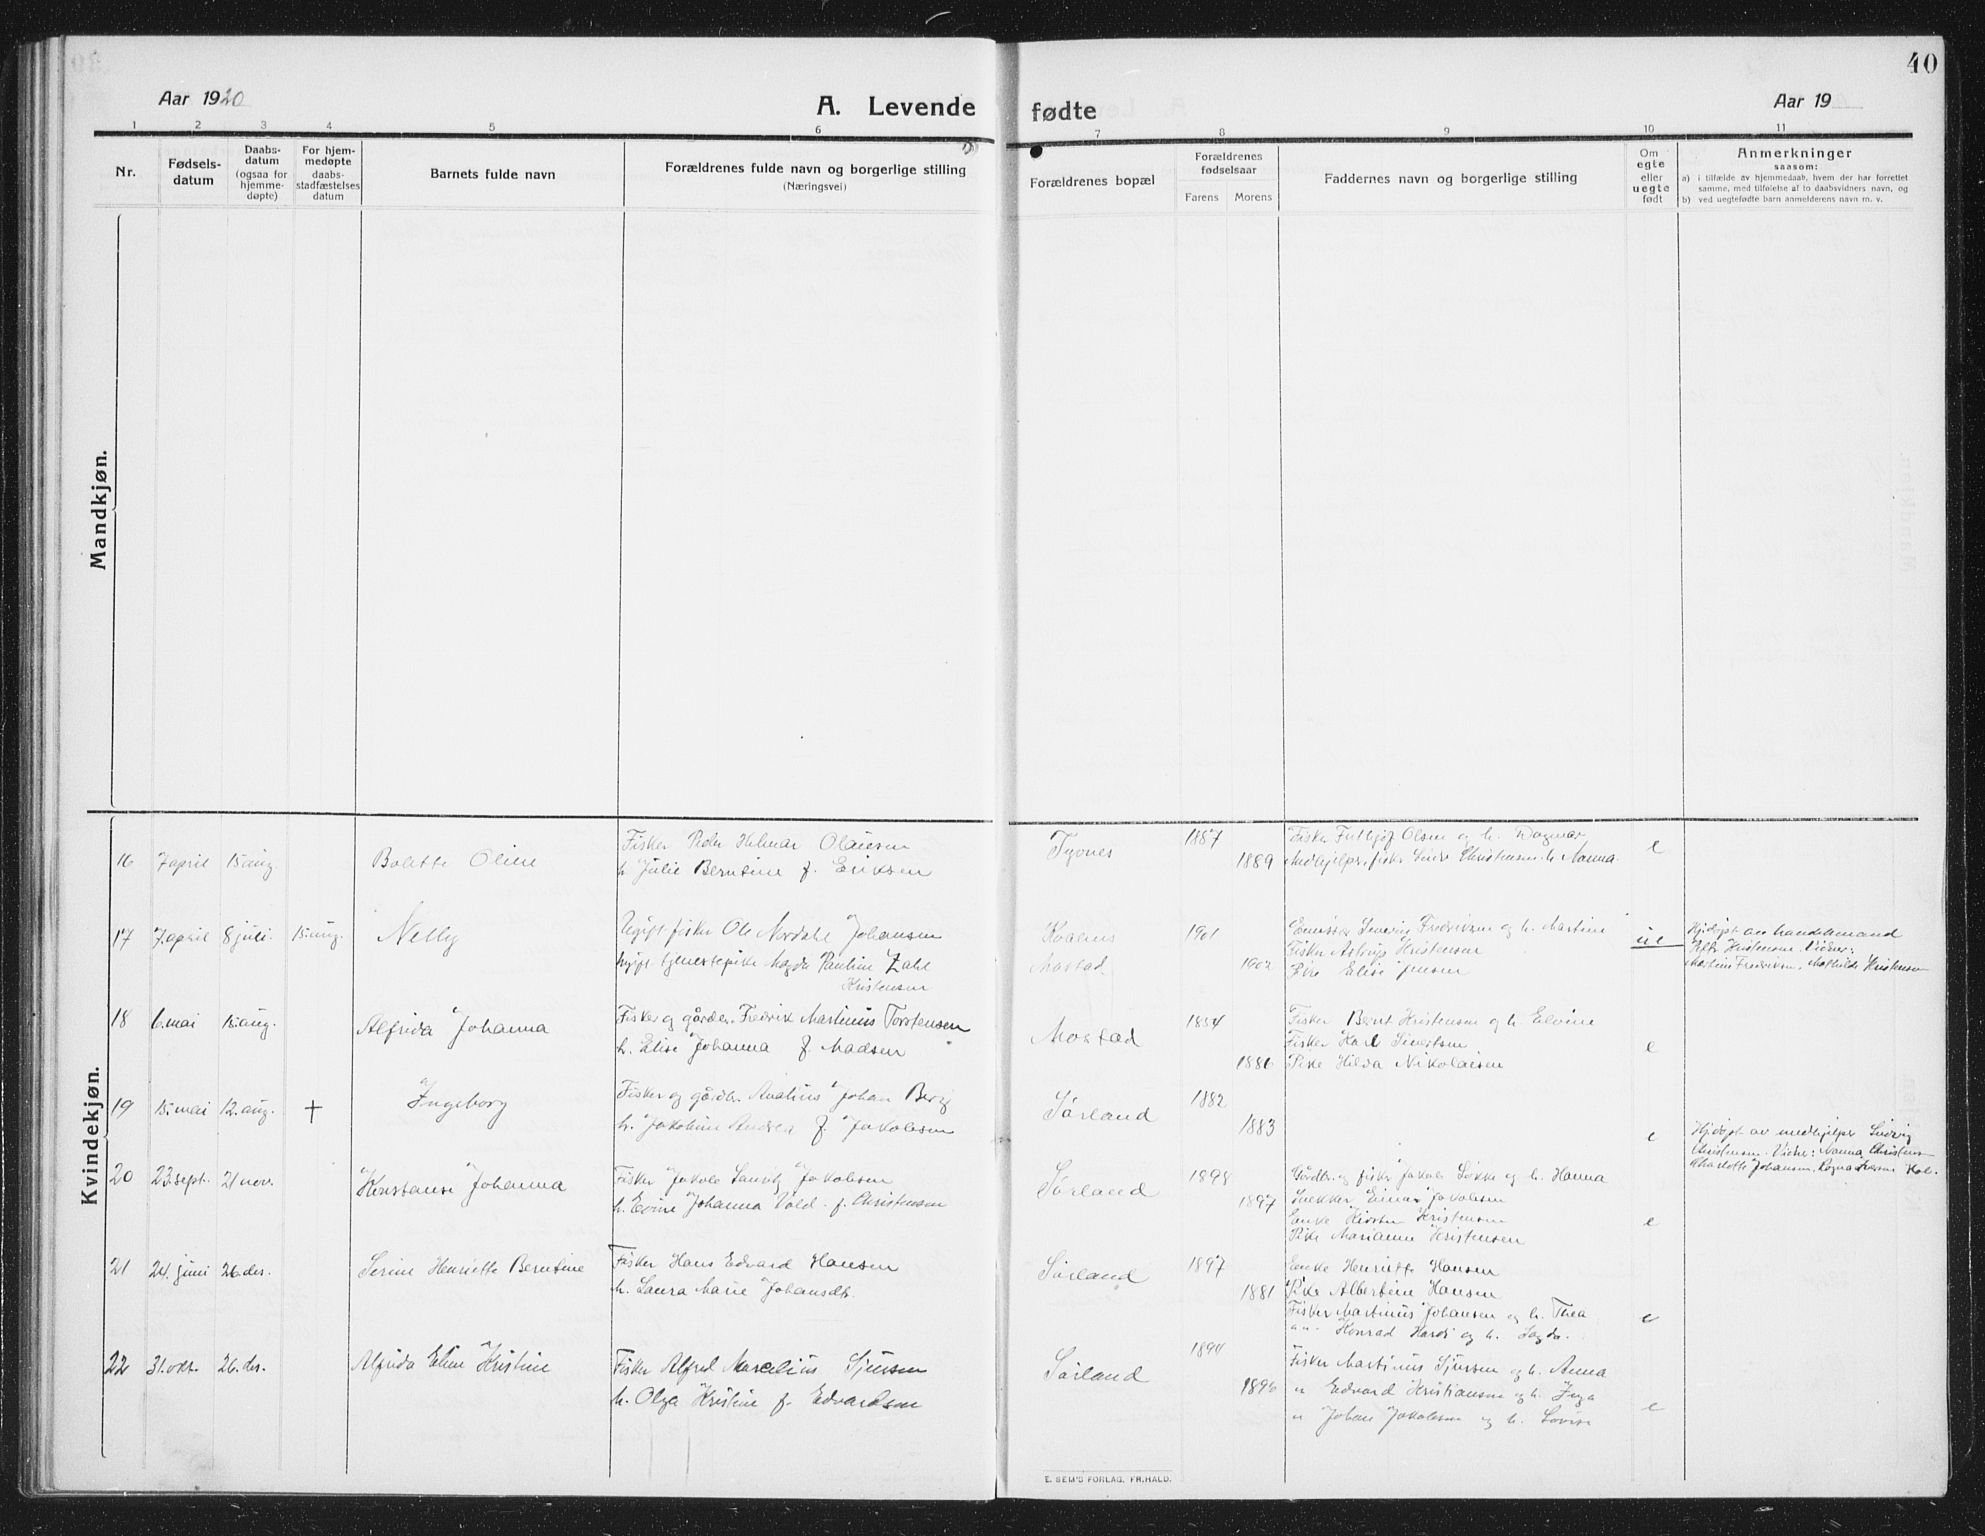 40
Aar 1920
A. Levende
fødte
Aar 19
1 2 3 4 5 6 7 8 9 10 11
Nr.
Fødsels-
datum
Daabs-
datum
(ogsaa for
hjemme-
døpte)
For hjem-
medøpte
daabs-
stadfæstelses
datum
Barnets fulde navn
Forældrenes fulde navn og borgerlige stilling
(Næringsvei)
Forældrenes bopæl
Forældrenes
fødselsaar
Farens Morens
Faddernes navn og borgerlige stilling
Om
egte
eller
uegte
født
Anmerkninger
saasom:
a) i tilfælde av hjemmedaab, hvem der har forrettet
samme, med tilføielse af to daabsvidners navn, og
b) ved uegtefødte barn anmelderens navn m. v.
Mandkjøn.
Kvindekjøn.
16 7 april 15 aug. Bolette Oline
Fisker Peder Hilmar Olausen
h. Julie Berntine f. Eriksen
1887
1889
Fisker Olsen og h. Dagmar
Medhjelper, fisker Christensen h. Nanna
e
17 7. april 8 juli. 15. aug. Nelly
Ugift fisker Ole Nordahl Johansen
ugift tjenestepike Magda Pauline Zahl
Kristensen
Mastad
1901
1902
Severin Fredriksen og h. Martine
Fisker Astrup Kristensen
Pike Elise Jensen
ue
Hjdøpt av handelsmand
Kristensen. Vidner:
Martine Fredriksen, Mathilde Kristensen
18 6. mai 15. aug. Alfrida Johanna
Fisker og gårdbr. Fredrik Martinus Torstensen
h. Elise Johanna f. Madsen
Mostad
1854
1886
Fisker Bernt Kristensen og h. Elvine
Fisker Karl Sivertsen
Pike Hilda Nikolaisen
e
19 15. mai 12. aug. + Ingeborg
Fisker og gårdbr. Johan Berg
h. Jakobine Andrea f. Jakobsen
Sørland
1882
1883
e
Hjdøpt av medhjelper Ludvig
Christensen. Vidner: Nanna Christens-
Charlotte Johansen, Ragna
20 23. sept. 21 nov. Konstanse Johanna
Fisker Jakob Lauritz Jakobsen
h. Evine Johanna Vold f. Christensen
Sørland
1898
1897
Gårdbr. og fisker Jakob Løkke og h. Hanna
Snekker Einar Jakobsen
Enke Kristensen
Pike Marianne Kristensen
e
21 24. juni 26. des. Serine Henriette Berntine
Fisker Hans Edvard Hansen
h. Laura Marie Johansdtr.
Sørland
1897
1881
Enke Henriette Hansen
Pike Albertine Hansen
Fisker Martinus Johansen og h. Thea
" " Konrad og h.
e
22 31. okt. 26. des. Alfrida Eline Kristine
Fisker Alfred Marcelius Sjursen
h. Olga Kristine f. Edvardsen
Sørland
1894
1896
Fisker Martinus Sjursen og h. Anna
" Edvard Kristiansen og h. Inga
" Johan Jakobsen og h. Lovise
e
E. SEM'S FORLAG, FR.HALD.